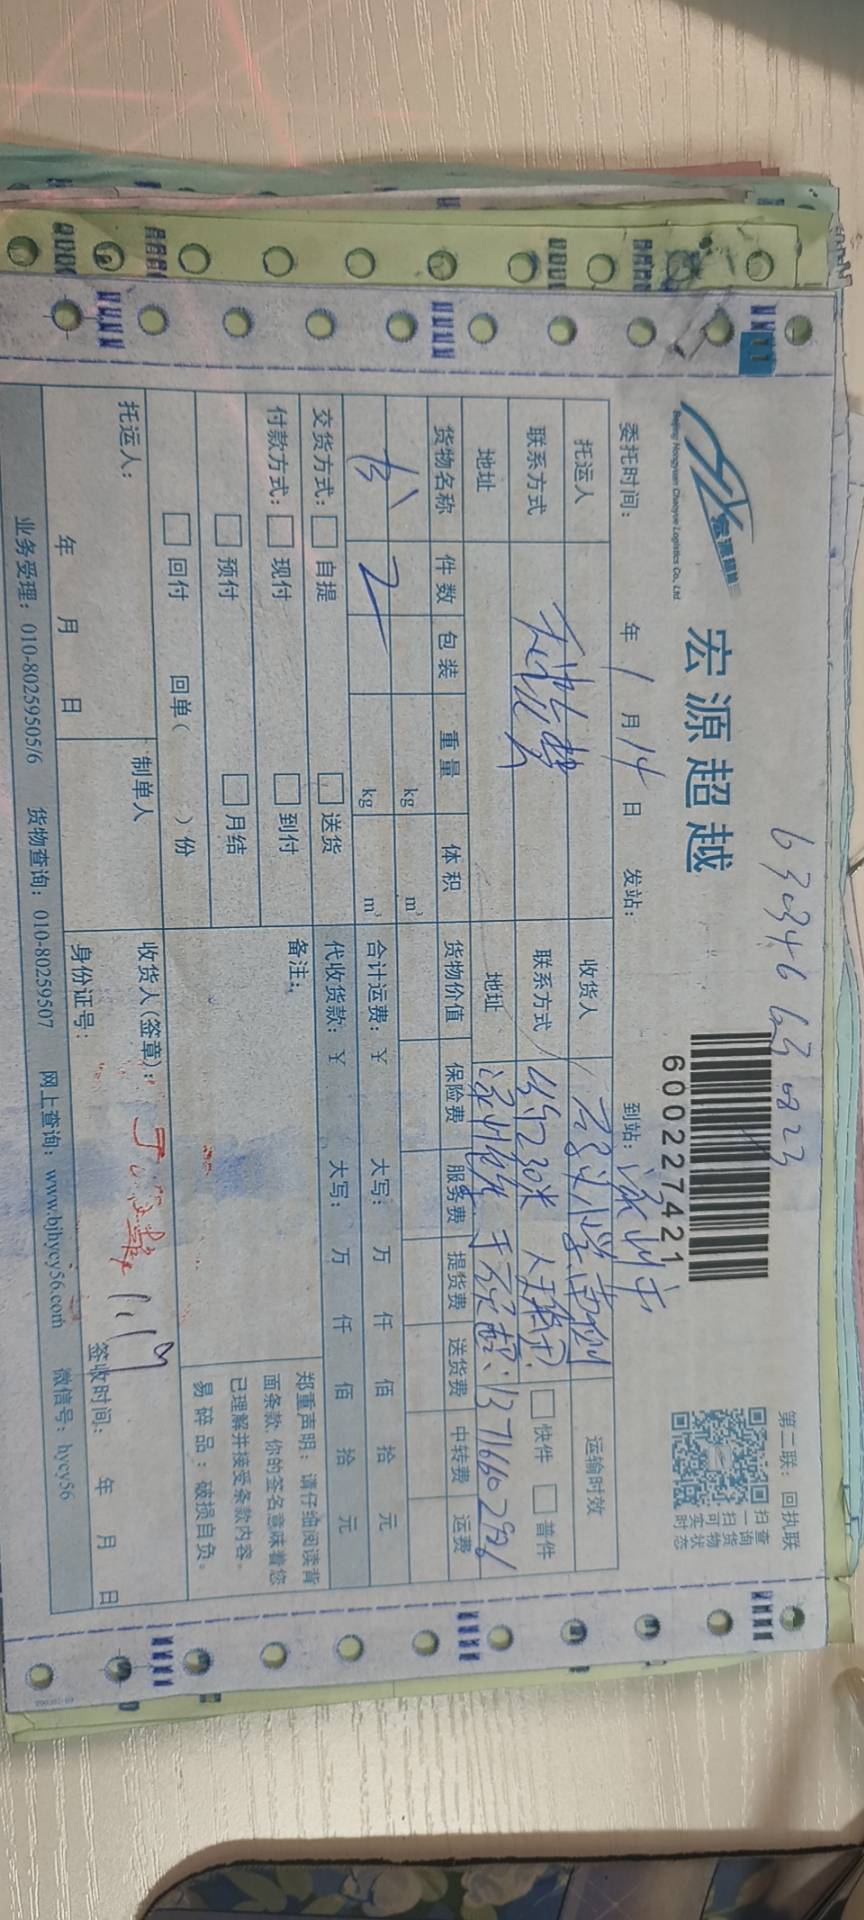 630346 630823
第二联：回执联
宏源超越
宏源超越
Beijing Hongyuan Chaoyue Logistics Co., Ltd
600227421
扫一扫可实时
查询货物状态
委托时间： 年 1 月 14 日 发站： 到站：涿州市
托运人 收货人 运输时效
联系方式 联系方式 约230米 快件 普件
地址 地址 13716602926
货物名称 件数 包装 重量 体积 货物价值 保险费 服务费 提货费 送货费 中转费 运费
kg m³
书 2 kg m³
合计运费：￥ 大写： 万 仟 佰 拾 元
交货方式： 自提 送货 代收货款：￥ 大写： 万 仟 佰 拾 元
付款方式： 现付 到付 备注：
预付 月结
回付 回单（ ）份
郑重声明：请仔细阅读背
面条款，你的签名意味着您
已理解并接受条款内容。
易碎品：破损自负。
托运人： 制单人 收货人（签章）：
年 月 日 身份证号： 签收时间： 年 月 日
业务受理：010-80259505/6 货物查询：010-80259507 网上查询：www.bjhycy56.com 微信号：hycy56